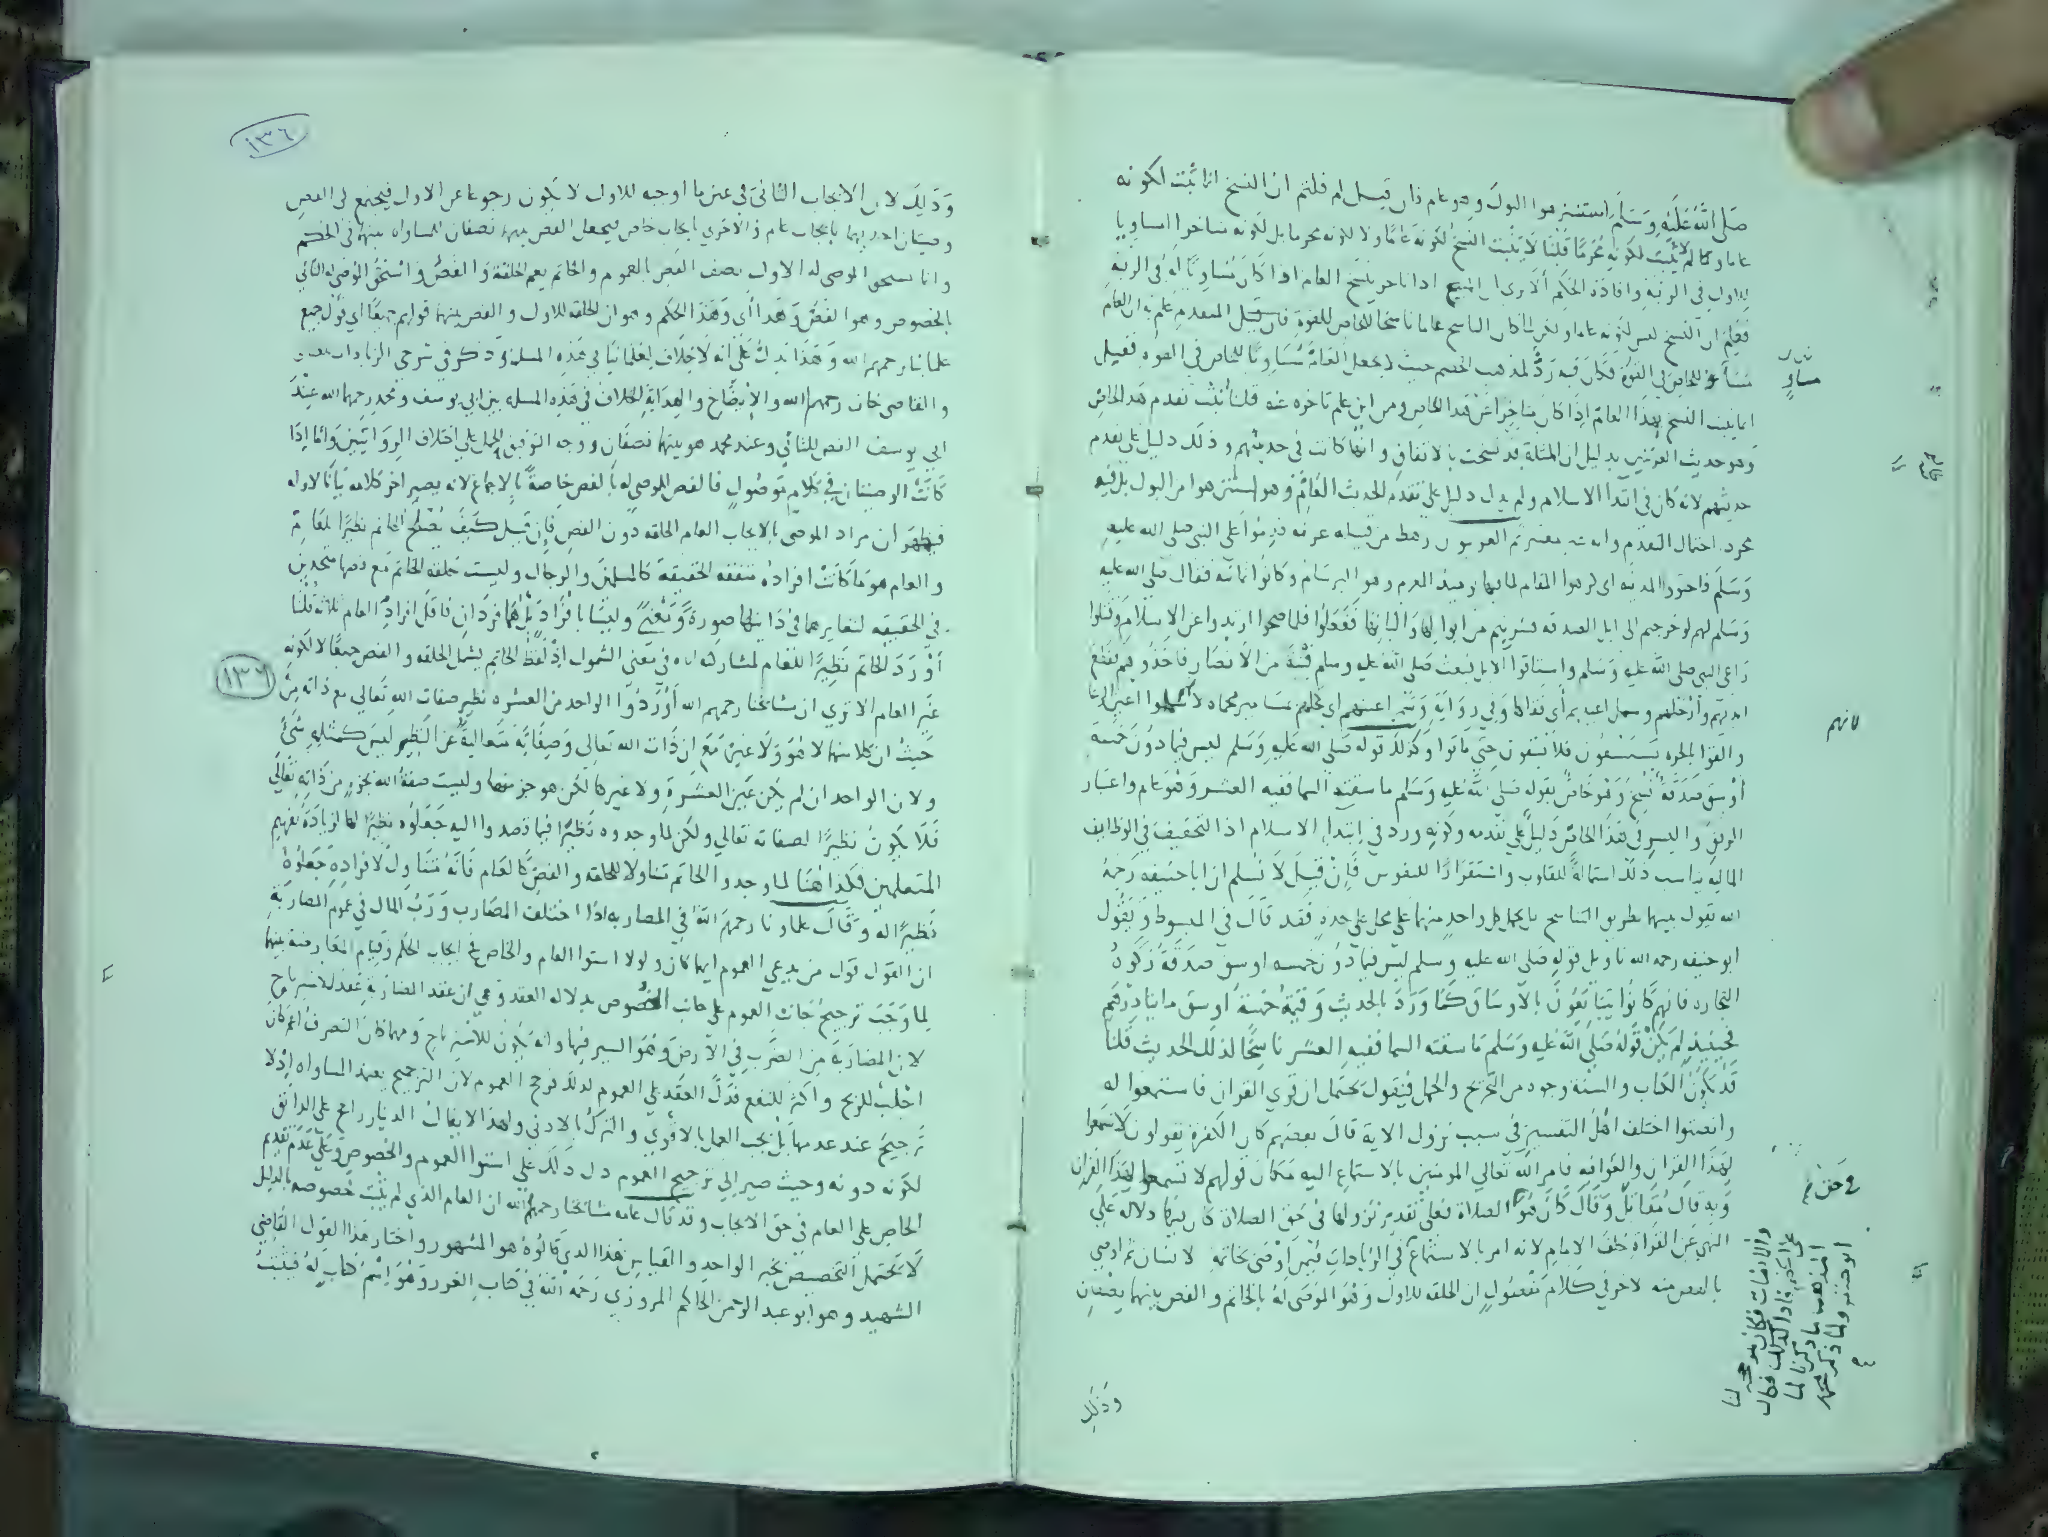 صَلَّى اللَّهُ عَلَيْهِ وَسَلَّمَ استنزهوا البول وهو عام فان قيل لم قلتم ان النسخ انما ثبت لكونه
عاما ولم لا يثبت لكونه محرما قلنا لا يثبت النسخ لكونه عاما ولا لكونه محرما بل لكونه متاخرا مساويا
للاول في الرتبه وافادة الحكم الا يرى ان المبيح اذا تاخر ينسخ العام اذا كان مساويا له في الرتبة
فعلم ان النسخ ليس لكونه عاما ولكن لما كان الناسخ عاما ناسخا للخاص للقوة فان قبل المتقدم علم به ان العام
مساو للخاص في القوة فكان فيه رد لمذهب الخصم حيث لا يجعل العام مساويا للخاص في القوه فقيل
انما يثبت النسخ بهذا العام اذا كان متاخرا عن هذا الخاص ومن اين علم تاخره عنه قلنا ثبت تقدم هذا الخاص
وهو حديث العرنيين بدليل ان المثلة قد نسخت بالاتفاق وانها كانت في حديثهم وذلك دليل على تقدم
حديثهم لانه كان في ابتدا الاسلام ولم يدل دليل على تقدم الحديث العام وهو استنزهوا من البول بل فيه
مجرد احتمال التقدم
وسلم فاجتووا المدينه اى كرهوا المقام
وسلم لهم لو خرجتم الى ابل الصدقه فشربتم من ابوالها والبانها ففعلوا فلما صحوا ارتدوا عن الاسلام وقتلوا
راعى النبي صلى الله عليه وسلم واستاقوا الابل فبعث صلى الله عليه وسلم من الانصار فاخذوهم فقطع
ايديهم وارجلهم وسمل اعينهم اى فقاها وفي رواية وسمر اعينهم اى كحلهم بمسامير محماه لانهم سملوا اعين الرعا
والقوا بالحره يستسقون فلا يسقون حتى ماتوا وكذلك قوله صلى الله عليه وسلم ليس فيما دون خمسة
أوسق صدقة نسخ وهو خاص بقوله صلى الله عليه وسلم ما سقته السما ففيه العشر وهو عام واعتبار
الرفق واليسر في هذا الخاص دليل على تقدمه وكونه ورد في ابتدا الاسلام اذ التخفيف في الوظايف
الماليه يناسب ذلك استمالة للقلوب واستقرارا للنفوس فان قيل لا نسلم ان ابا حنيفه رحمه
الله يقول بينهما بطريق التناسخ بل يحمل كل واحد منهما على محل على حدة فقد قال في المبسوط ويقول
ابو حنيفه رحمه الله تاويل قوله صلى الله عليه وسلم ليس فيما دون خمسه اوسق صدقة زكوة
التجاره فانهم كانوا يتبايعون بالاوساق كما ورد بالحديث وقيمة خمسة اوسق مايتا درهم
فحينيذ لم يكن قوله صلى الله عليه وسلم ما سقته السما ففيه العشر ناسخا لذلك الحديث قلنا
قد يكون للكتاب والسنة وجوه من التخريج والحمل فيقول يحتمل ان قرى القران فاستمعوا له
وانصتوا اختلف اهل التفسير في سبب نزول الاية قال بعضهم كان الكفرة يقولون لا تسمعوا
لهذا القران والغوا فيه فامر الله تعالى المومنين بالاستماع اليه مكان قولهم لا تسمعوا لهذا القران
وبه قال مقاتل وقال كان هو الصلاة فعلى تقدير نزولها في حق الصلاة كان فيها دلاله على
النهي عن القراة خلف الامام لانه امر بالاستماع في الزيادات فيمن اوصى بخاتمه لانسان ثم اوصى
بالفص منه لاخر في كلام مفصول ان الحلقه للاول وهو الموصى له بالخاتم والفص بينهما نصفان
مساو
لانهم
في حق
وذلك
١٣٦
وَذلِكَ لان الايجاب الثاني في عين ما اوجبه للاول لا يكون رجوعا عن الاول فيجتمع في الفص
وصيتان احديهما بايجاب عام والاخرى بايجاب خاص فيجعل الفص بينهما نصفان للمساواه بينهما في الحكم
وانما يستحق الموصى له الاول نصف الفص بالعموم والخاتم يعم الحلقة والفص واستحق الموصى له الثاني
بالخصوص وهو الفص وهذا أي وهذا الحكم وهو ان الحلقة للاول والفص بينهما قولهم جميعا اي قول جميع
علمائنا رحمهم الله وهذا يدل على انه لا خلاف لعلمائنا في هذه المسله وذكر في شرحي الزيادات
والقاضي خان رحمهم الله والايضاح والهداية الخلاف في هذه المسله بين ابي يوسف ومحمد رحمهما الله عند
ابي يوسف الفص للثاني وعند محمد هو بينهما نصفان ووجه التوفيق الحمل على اختلاف الروايتين وانما اذا
كانت الوصيتان في كلام موصول فالفص للموصى له بالفص خاصة بالاجماع لانه يصير اخر كلامه بيانا لاوله
فيظهر ان مراد الموصى بالايجاب العام الحلقه دون الفص فان قيل كيف يصلح الخاتم نظيرا للعام
والعام هو ما كانت افراده متفقه الحقيقة كالمسلمين والرجال وليست حلقه الخاتم مع فصها متحدين
في الحقيقه لتغايرهما في ذاتيهما صورة ومعنى وليسا بافراد بل هما فردان فاقل افراد العام ثلاثه قلنا
أورد الخاتم نظيرا للعام لمشاركته اياه في معنى الشمول اذ لفظ الخاتم يشمل الحلقه والفص جميعا لا لكونه
عين العام الا ترى ان مشائخنا رحمهم الله أوردوا الواحد من العشره نظير صفات الله تعالى مع ذاته من
حيث ان كلا منهما لا هو ولا غيره مع ان ذات الله تعالى وصفاته متعالية عن النظير ليس كمثله شيء
ولان الواحد ان لم يكن عين العشرة ولا غيرها لكن هو جز منها وليست صفة الله بجزء من ذاته تعالى
فلا يكون نظيرا لصفاته تعالى ولكن لما وجدوه نظيرا فيما قصدوا اليه جعلوه نظيرا لها لزيادة تفهيم
المتعلمين فكذا هنا لما وجدوا الخاتم متناولا للحلقه والفص كالعام فانه متناول لافراده جعلوه
نظيرا له وقال علماونا رحمهم الله في المضاربه اذا اختلف المضارب ورب المال في عموم المضاربة
ان القول قول من يدعي العموم ايهما كان ولولا استوا العام والخاص في ايجاب الحكم وقيام المعارضة بينهما
لما وجب ترجيح جانب العموم على جانب الخصوص بدلاله العقد وهي ان عقد المضاربة عقد للاسترباح
لان المضاربة من الضرب في الارض وهو السير فيها وانه يكون للاسترباح ومهما كان التصرف اعم كان
اجلب للربح واكثر للنفع فدل العقد على العموم لذلك فرجح العموم لان الترجيح يعتمد المساواه اذ لا
ترجيح عند عدمها بل يجب العمل بالاقوى والترك بالادنى ولهذا لا يقال الدينار راجح على الدانق
لكونه دونه وحيث صير الى ترجيح العموم دل ذلك على استوا العموم والخصوص وعلى عدم تقديم
الخاص على العام في حق الايجاب وقد قال عامه مشائخنا رحمهم الله ان العام الذي لم يثبت خصوصه بالدليل
لا يحتمل التخصيص بخبر الواحد والقياس هذا الذي قالوه هو المشهور واختار هذا القول القاضي
الشهيد وهو ابو عبد الرحمن الحاكم المروزي رحمة الله في كتاب الغرر وهو اسم كتاب له فيثبت
١٣٦